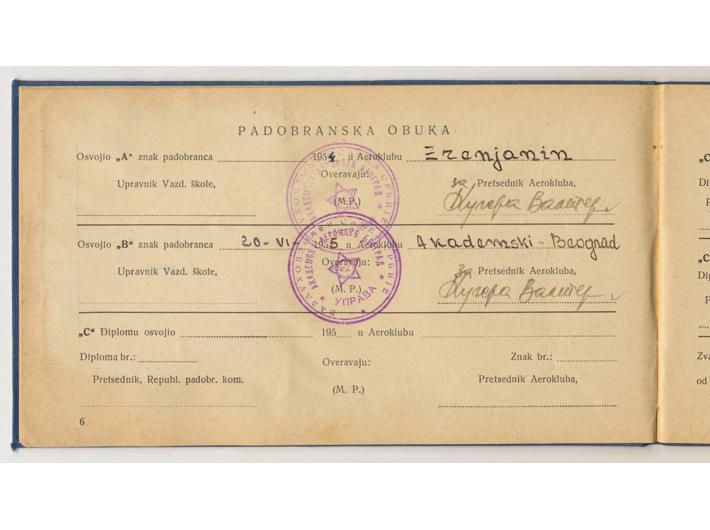 PADOBRANSKA OBUKA
Osvojio „A“ znak padobranca 1954 u Aeroklubu Zrenjanin
Overavaju:
Upravnik Vazd. škole, (M.P.) za Pretsednik Aerokluba,
Кучера Валтер
Osvojio „B“ znak padobranca 20-VI 1955 u Aeroklubu Akademski-Beograd
Overavaju:
Upravnik Vazd. škole, za Pretsednik Aerokluba,
(M. P.) Кучера Валтер
УПРАВА
„C“ Diplomu osvojio 195 u Aeroklubu
Diploma br.: Overavaju: Znak br.:
Pretsednik, Republ. padobr. kom. Pretsednik Aerokluba,
(M. P.)
6
„C
Di
„C
P
Zva
od